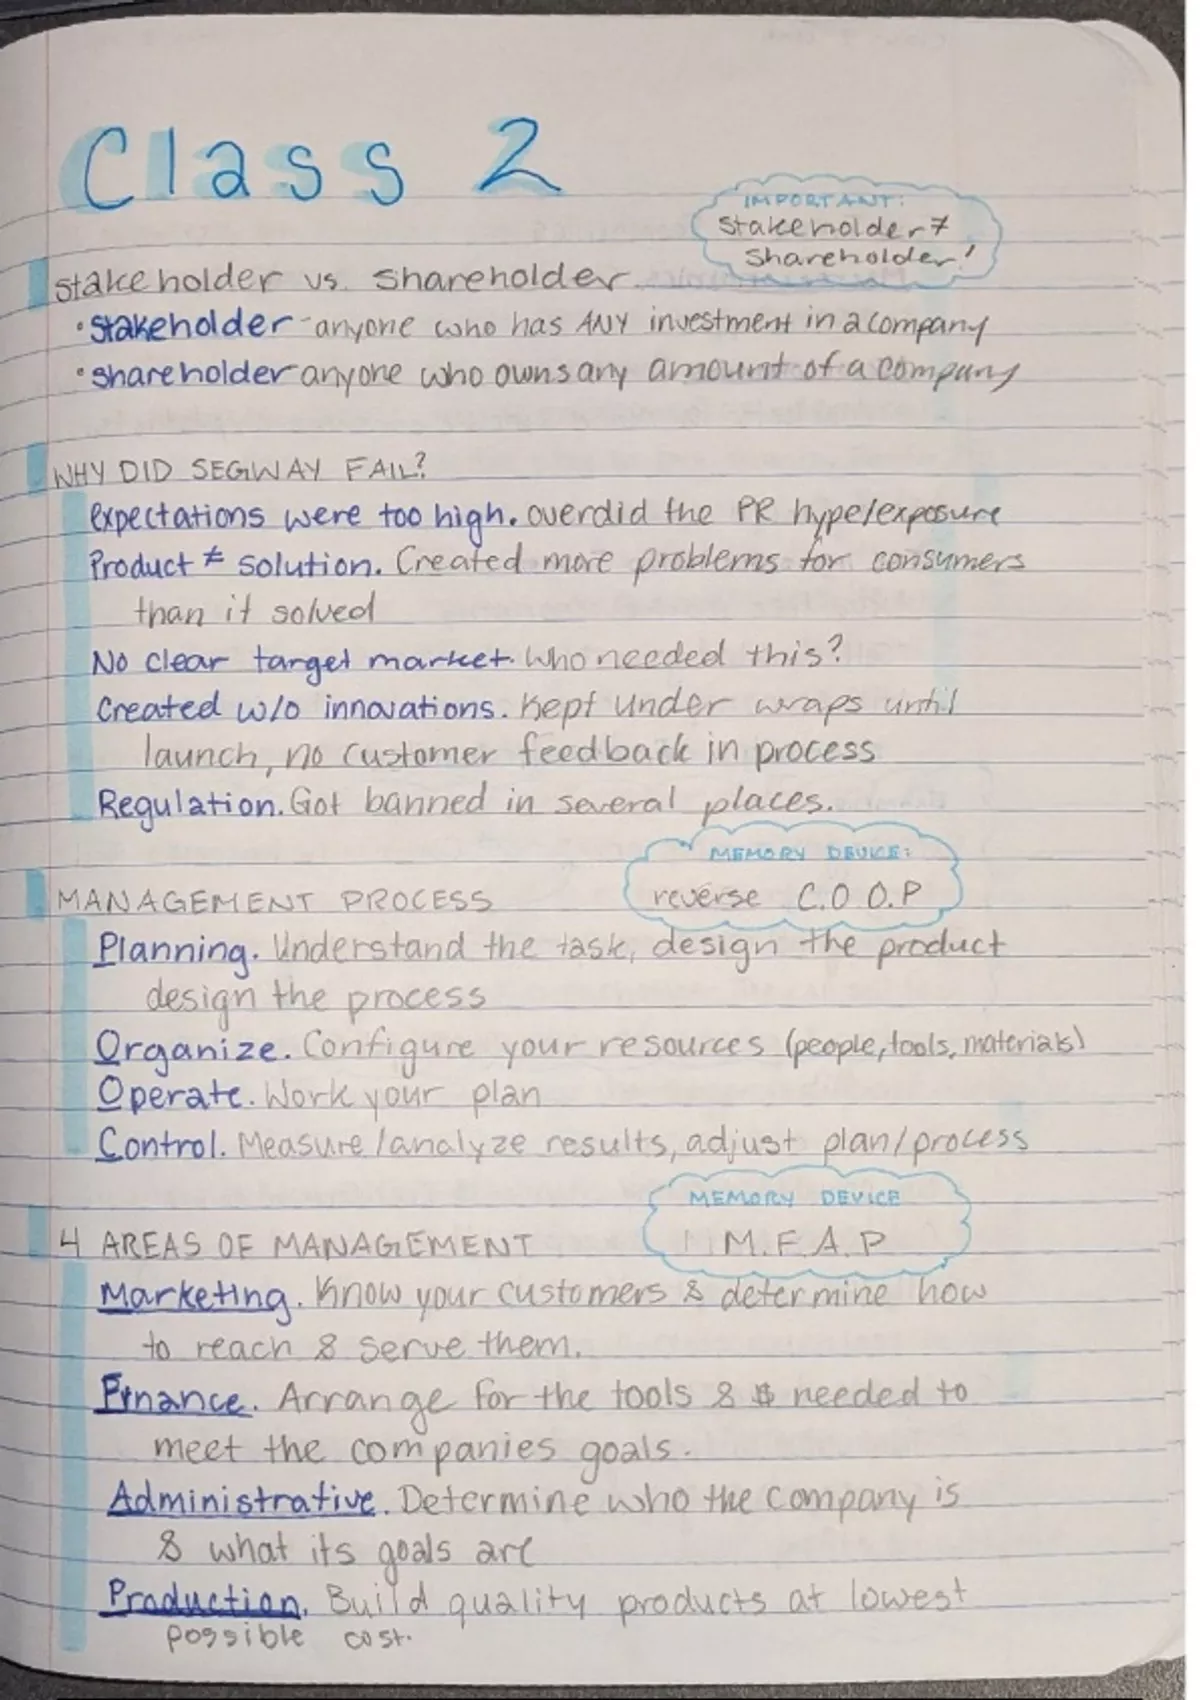 Class 2
IMPORTANT:
Stakeholder ≠
Shareholder!
stakeholder vs. Shareholder
• Stakeholder - anyone who has ANY investment in a company
• shareholder anyone who owns any amount of a company
WHY DID SEGWAY FAIL?
Expectations were too high. overdid the PR hype/exposure
Product ≠ solution. Created more problems for consumers
than it solved
No clear target market. Who needed this?
Created w/o innovations. Kept under wraps until
launch, no customer feedback in process
Regulation. Got banned in several places.
MEMORY DEVICE:
reverse C.O.O.P
MANAGEMENT PROCESS
Planning. Understand the task, design the product
design the process
Organize. Configure your resources (people, tools, materials)
Operate. Work your plan
Control. Measure/analyze results, adjust plan/process
MEMORY DEVICE
M.F.A.P
4 AREAS OF MANAGEMENT
Marketing. Know your customers & determine how
to reach & serve them.
Finance. Arrange for the tools & $ needed to
meet the companies goals.
Administrative. Determine who the company is
& what its goals are
Production. Build quality products at lowest
possible cost.